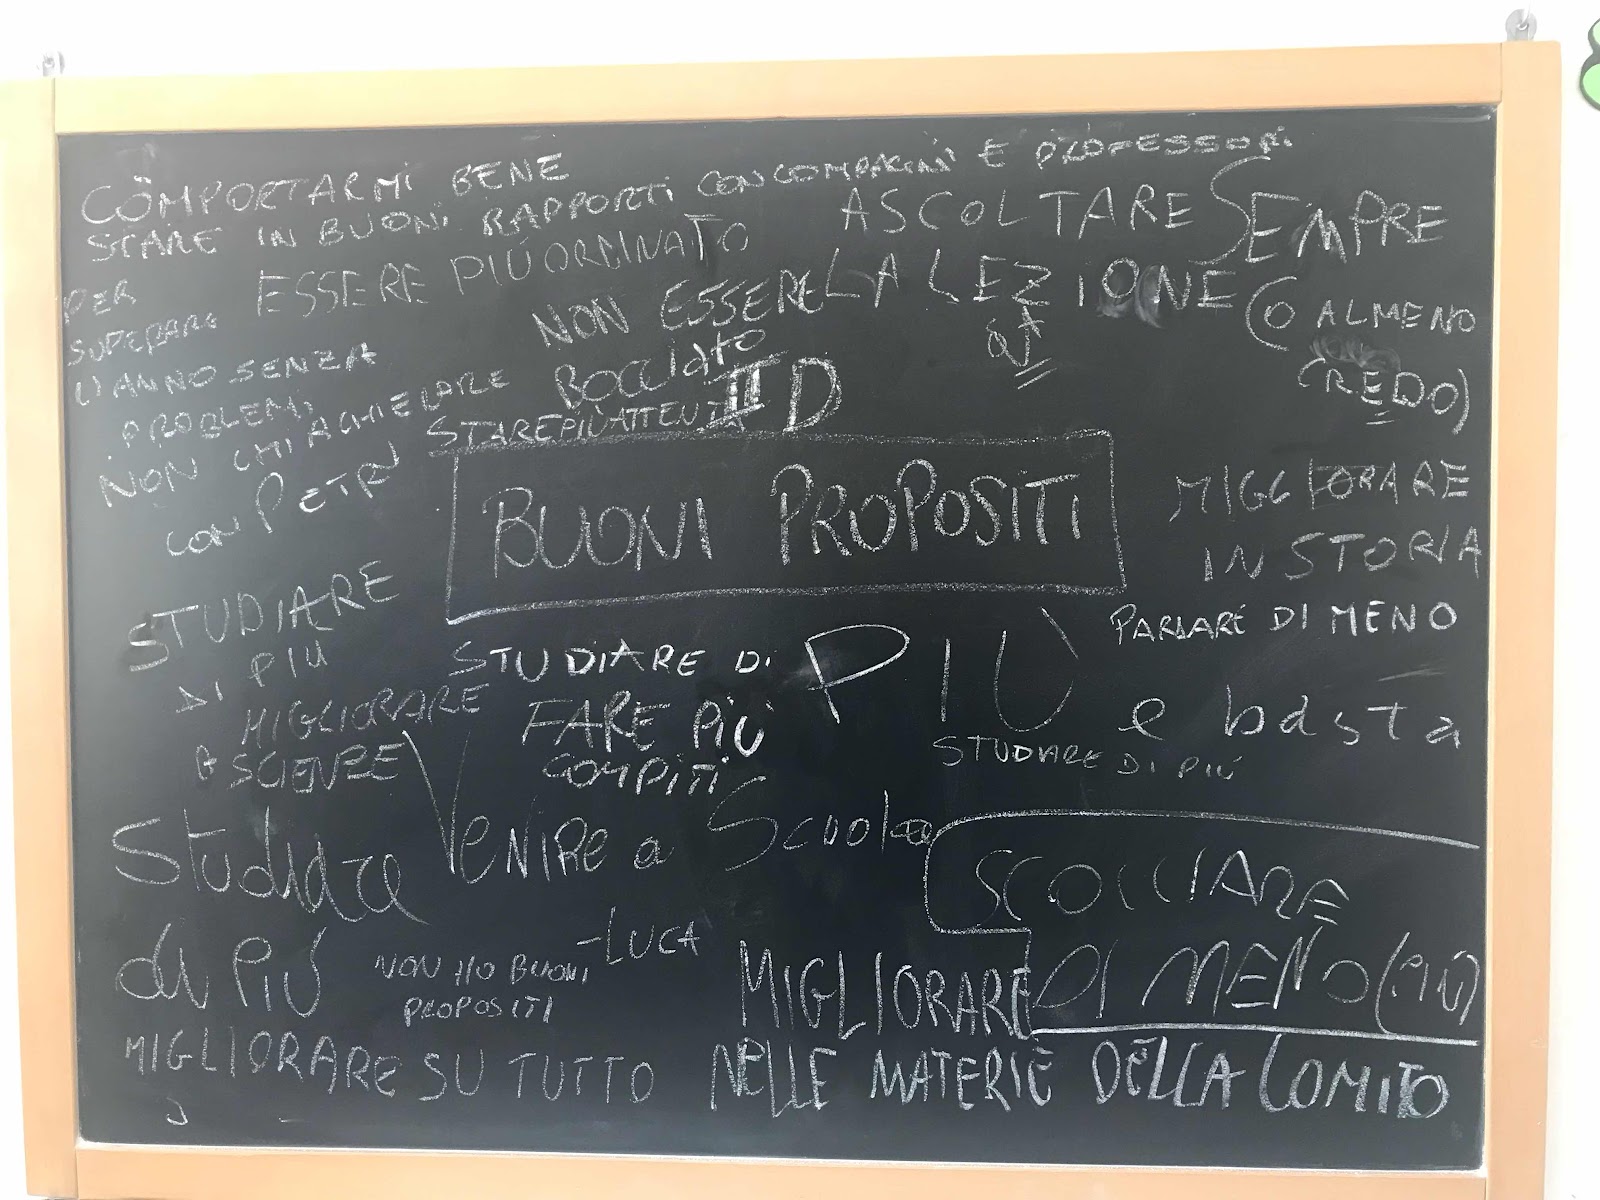 COMPORTARMI BENE
STARE IN BUONI RAPPORTI CON COMPAGNI E PROFESSORI
ESSERE PIÙ ORDINATO
ASCOLTARE SEMPRE
LA LEZIONE
(O ALMENO
CREDO)
PER
SUPERARE
L'ANNO SENZA
PROBLEMI
NON ESSERE
BOCCIATO
II D
STARE PIÙ ATTENTA
NON CHIACHIERARE
CON PETRI
BUONI PROPOSITI
MIGLIORARE
IN STORIA
PARLARE DI MENO
STUDIARE
DI PIÙ
STUDIARE DI PIÙ
e basta
MIGLIORARE
SCIENZE
FARE PIÙ
COMPITI
STUDIARE DI PIÙ
Studiare
di PIÙ
VENIRE a Scuola
-LUCA
SCOCCIARE
DI MENO (PIÙ)
NON HO BUONI
PROPOSITI
MIGLIORARE
NELLE MATERIE DELLA COMITO
MIGLIORARE SU TUTTO